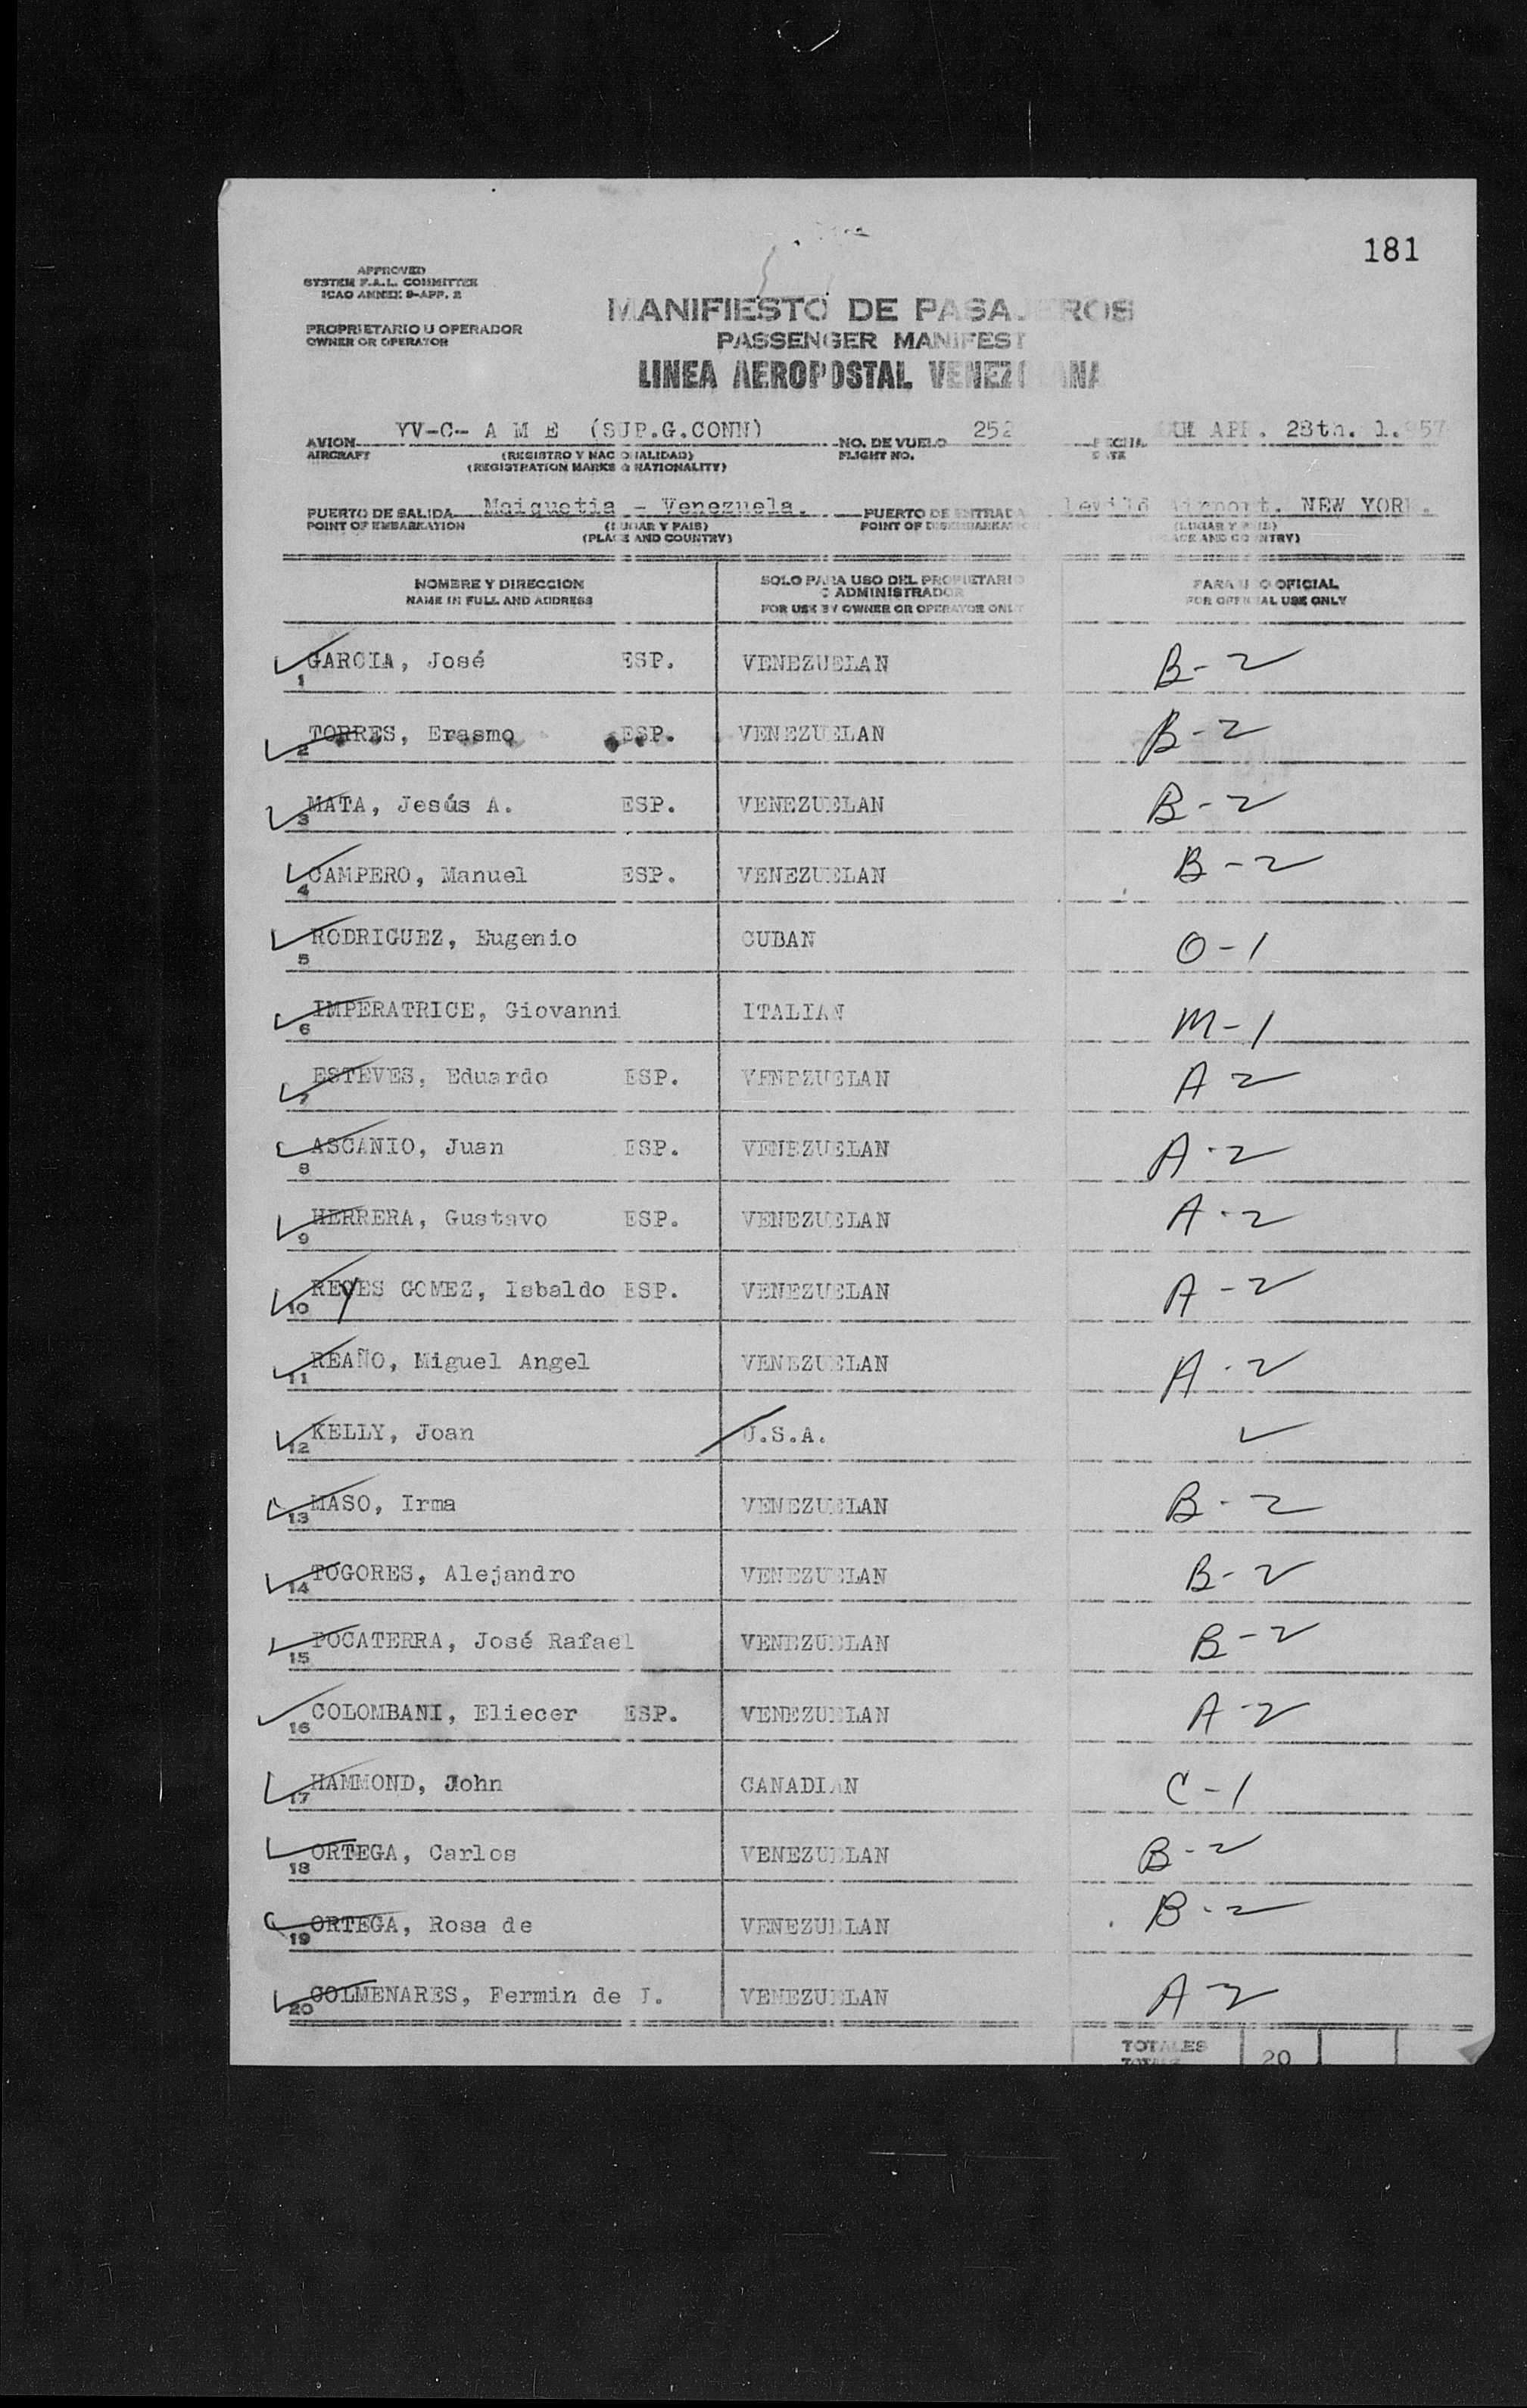 181
APPROVED
SYSTEM F.A.L. COMMITTEE
ICAO ANNEX 9-APP. 2
MANIFIESTO DE PASAJEROS
PROPRIETARIO U OPERADOR
OWNER OR OPERATOR
PASSENGER MANIFEST
LINEA AEROPOSTAL VENEZOLANA
AVION YV-C- A M E (SUP.G.CONN) NO. DE VUELO 252 FECHA APR. 28th. 1.957
AIRCRAFT (REGISTRO Y NACIONALIDAD) FLIGHT NO. DATE
(REGISTRATION MARKS & NATIONALITY)
PUERTO DE SALIDA Maiquetia - Venezuela. PUERTO DE ENTRADA lewild Airport. NEW YORK.
POINT OF EMBARKATION (LUGAR Y PAIS) POINT OF DISEMBARKATION (LUGAR Y PAIS)
(PLACE AND COUNTRY) (PLACE AND COUNTRY)
NOMBRE Y DIRECCION SOLO PARA USO DEL PROPIETARIO O ADMINISTRADOR PARA USO OFICIAL
NAME IN FULL AND ADDRESS FOR USE BY OWNER OR OPERATOR ONLY FOR OFFICIAL USE ONLY
1 GARCIA, José ESP. VENEZUELAN B-2
2 TORRES, Erasmo ESP. VENEZUELAN B-2
3 MATA, Jesús A. ESP. VENEZUELAN B-2
4 CAMPERO, Manuel ESP. VENEZUELAN B-2
5 RODRIGUEZ, Eugenio CUBAN O-1
6 IMPERATRICE, Giovanni ITALIAN M-1
7 ESTEVES, Eduardo ESP. VENEZUELAN A-2
8 ASCANIO, Juan ESP. VENEZUELAN A-2
9 HERRERA, Gustavo ESP. VENEZUELAN A-2
10 REYES GOMEZ, Isbaldo ESP. VENEZUELAN A-2
11 REAÑO, Miguel Angel VENEZUELAN A-2
12 KELLY, Joan U.S.A. ✓
13 MASO, Irma VENEZUELAN B-2
14 TOGORES, Alejandro VENEZUELAN B-2
15 POCATERRA, José Rafael VENEZUELAN B-2
16 COLOMBANI, Eliecer ESP. VENEZUELAN A-2
17 HAMMOND, John CANADIAN C-1
18 ORTEGA, Carlos VENEZUELAN B-2
19 ORTEGA, Rosa de VENEZUELAN B-2
20 COLMENARES, Fermin de J. VENEZUELAN A-2
TOTALES 20
TOTALS